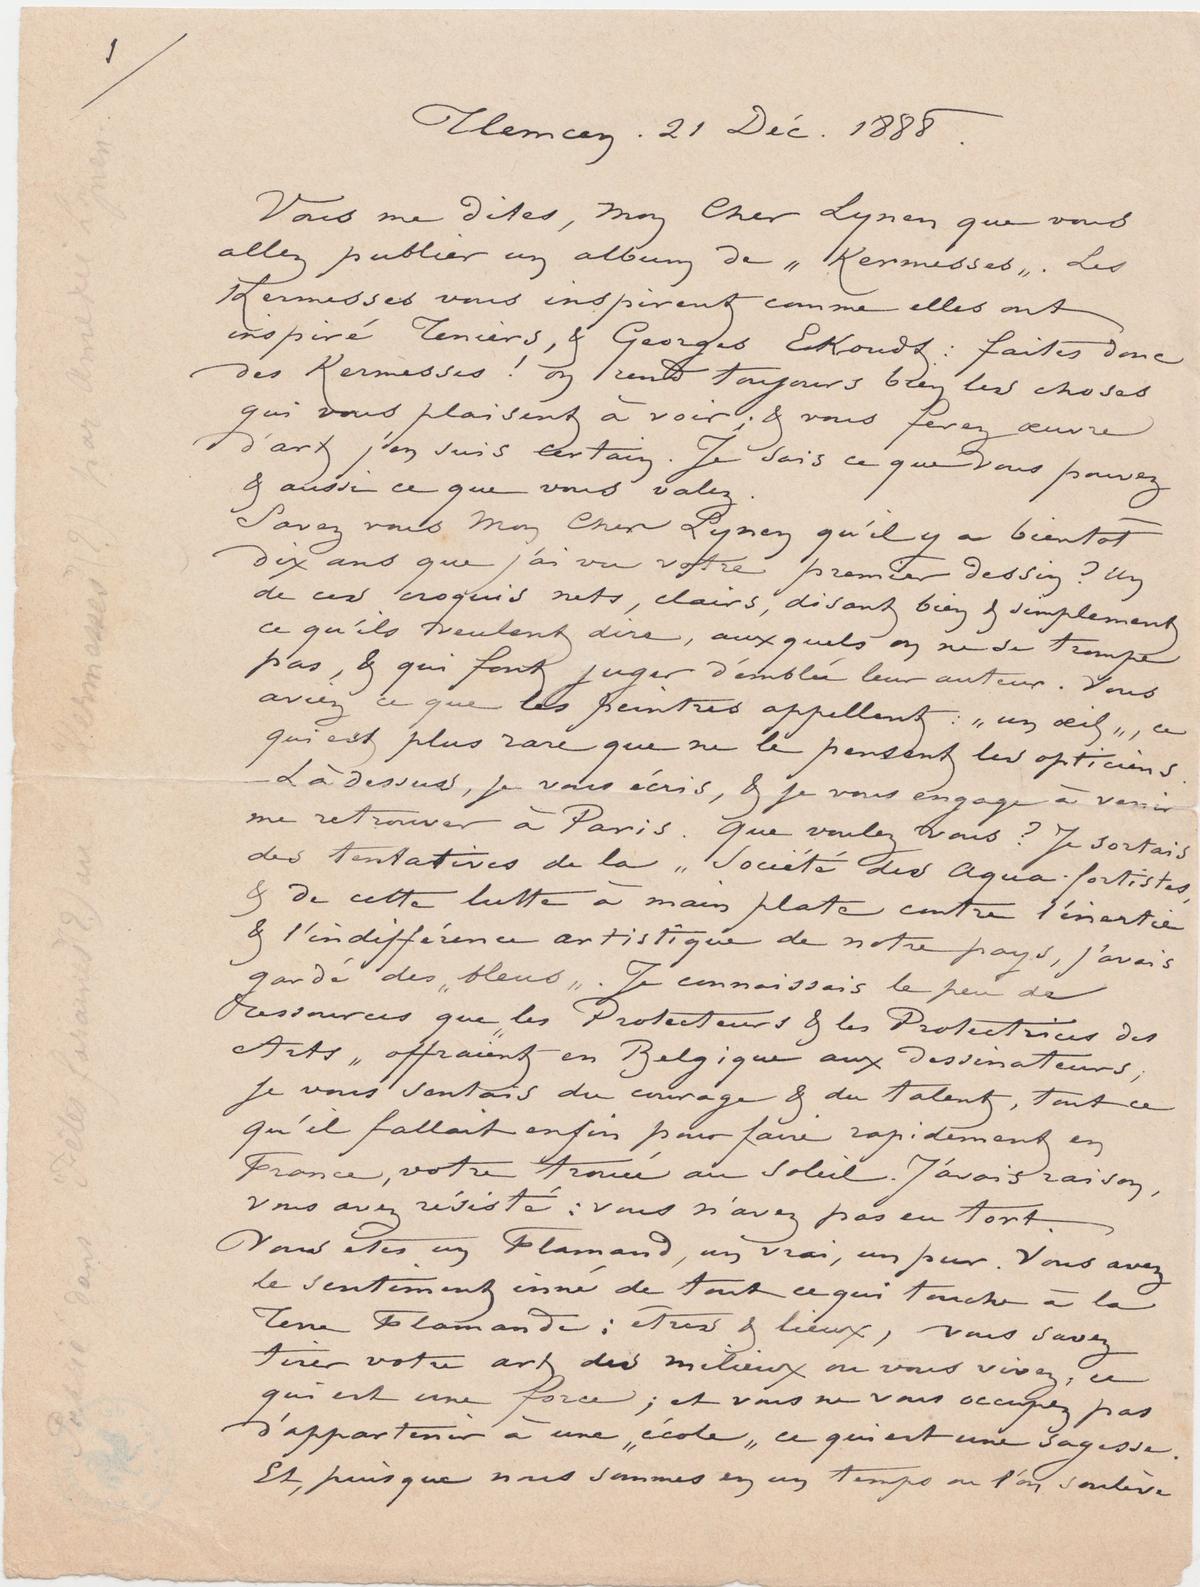 1
Tlemcen. 21 Déc. 1888.
Vous me dites, mon Cher Lynen que vous
allez publier un album de „Kermesses„. Les
Kermesses vous inspirent comme elles ont
inspiré Teniers, & Georges EKoudt : faites donc
des Kermesses ! on rend toujours bien les choses
qui vous plaisent à voir ; & vous ferez œuvre
d'art j'en suis certain. Je sais ce que vous pouvez
& aussi ce que vous valez.
Savez vous Mon Cher Lynen qu'il y a bientôt
dix ans que j'ai vu votre premier dessin ? Un
de ces croquis nets, clairs, disant bien & simplement
ce qu'ils veulent dire, auxquels on ne se trompe
pas, & qui font juger d'emblée leur auteur. Vous
aviez ce que les peintres appellent : „un œil„, ce
qui est plus rare que ne le pensent les opticiens.
Là dessus, je vous écris, & je vous engage à venir
me retrouver à Paris. Que voulez vous ? Je sortais
des tentatives de la „Société des Aqua-fortistes
& de cette lutte à main plate contre l'inertie
& l'indifférence artistique de notre pays, j'avais
gardé des „bleus„. Je connaissais le peu de
ressources que „les Protecteurs & les Protectrices des
Arts„ offraient en Belgique aux dessinateurs,
je vous sentais du courage & du talent, tout ce
qu'il fallait enfin pour faire rapidement en
France, votre trouée au soleil. J'avais raison,
vous avez résisté : vous n'avez pas eu tort.
Vous etes un Flamand, un vrai, un pur. Vous avez
le sentiment inné de tout ce qui touche à la
Terre Flamande ; êtres & lieux, vous savez
tirer votre art des milieux ou vous vivez, ce
qui est une force ; et vous ne vous occupez pas
d'appartenir à une „école„ ce qui est une sagesse.
Et, puisque nous sommes en un temps ou l'on soulève
Publié dans